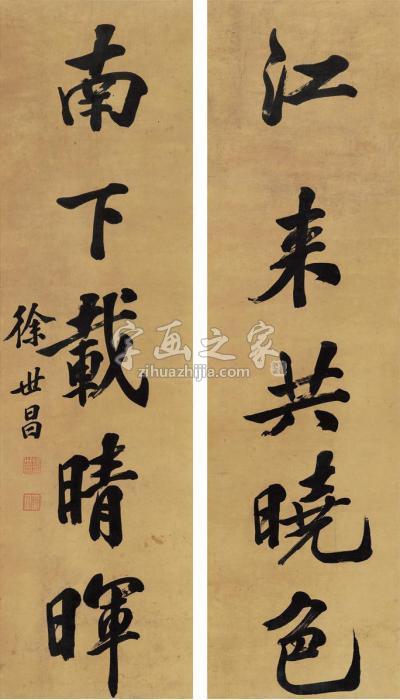 江来共曉色
南下載晴暉
徐世昌
字画之家
zihuazhijia.com